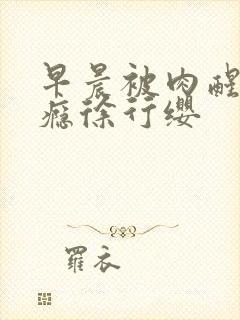 早晨被肉醒
瘾徐行缨
羅衣